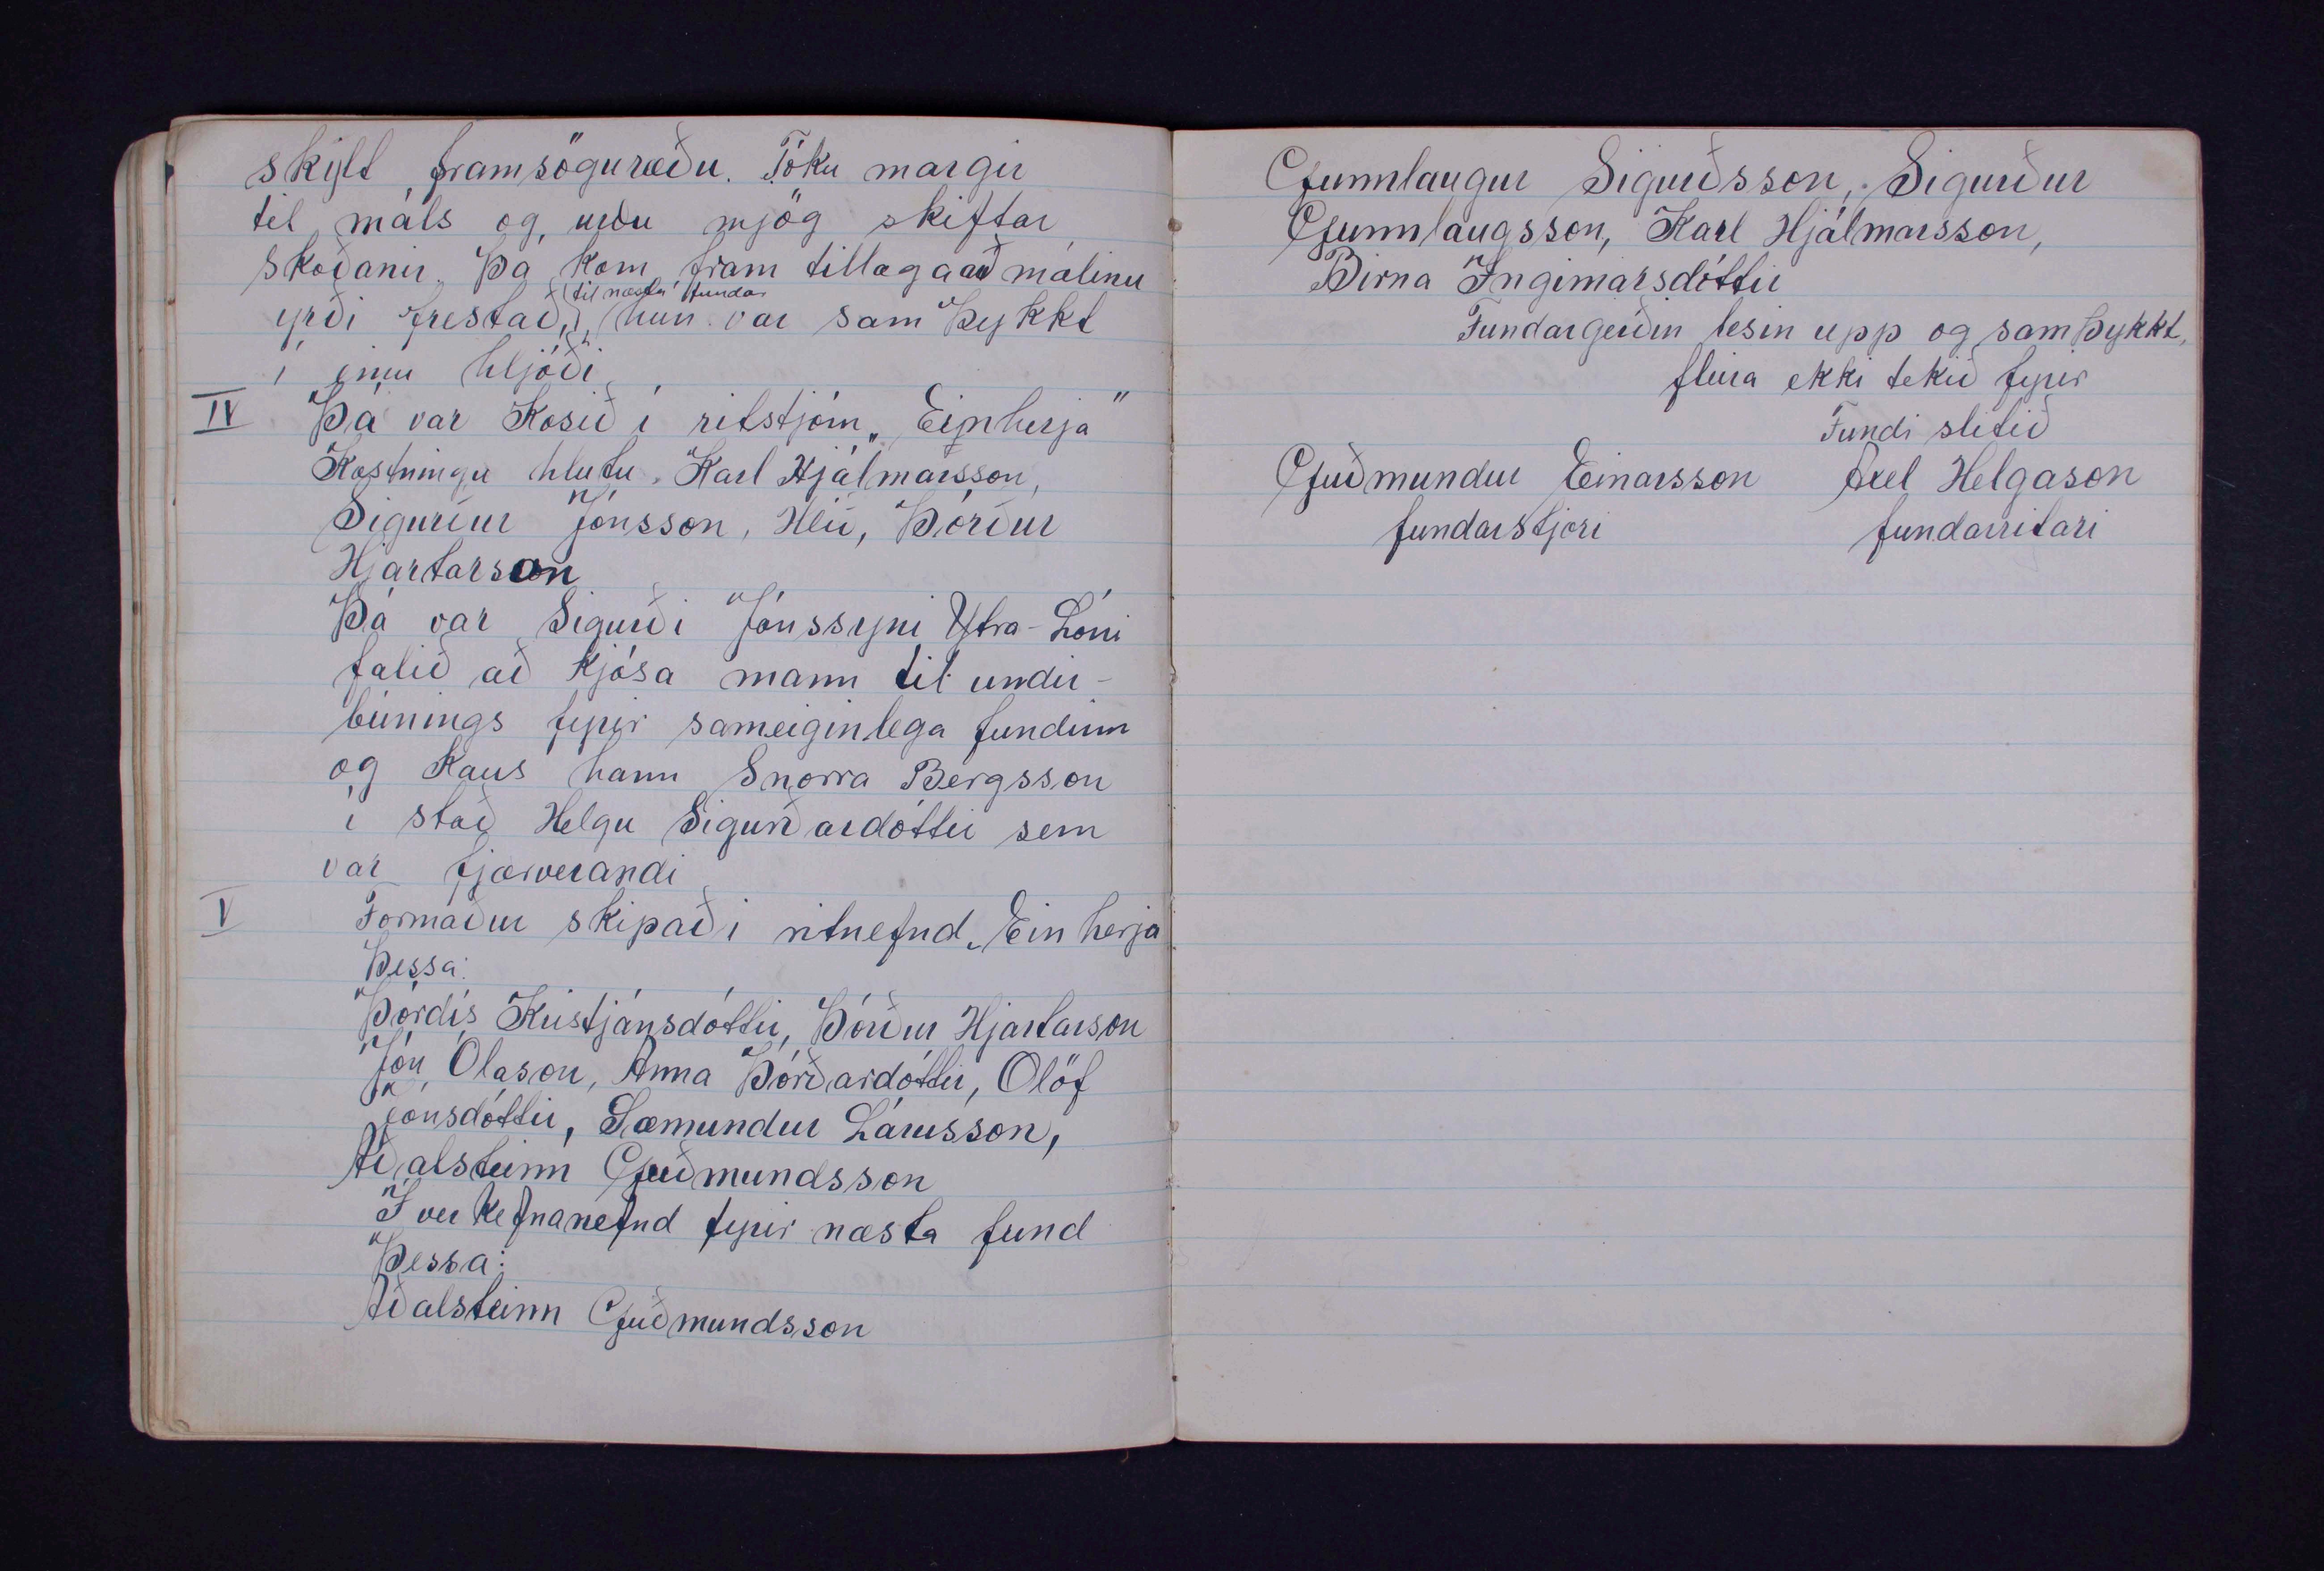 skylt framsöguræðu. Tóku margir
til máls og urðu mjög skiftar
skoðanir. Þá kom fram tillaga að málinu
til næsta fundar
yrði frestað, hún var samþykkt
í einu hljóði
IV Þá var kosið í ritstjórn „Einherja"
Kostningu hlutu. Karl Hjálmarsson,
Sigurður Jónsson, Hlíð, Þórður
Hjartarson
Þá var Sigurði Jónssyni Ytra-Lóni
falið að kjósa mann til undir-
búnings fyrir sameiginlega fundinn
og kaus hann Snorra Bergsson
í stað Helgu Sigurðardóttir sem
var fjærverandi
V Formaður skipaði ritnefnd „Einherja
Þessa:
Þórdís Kristjánsdóttir, Þórður Hjartarson
Jón Ólason, Anna Þórðardóttir, Ólöf
Jónsdóttir, Sæmundur Lárusson,
Aðalsteinn Guðmundsson
Í verkefnanefnd fyrir næsta fund
Þessa:
Aðalsteinn Guðmundsson
Gunnlaugur Sigurðsson, Sigurður
Gunnlaugsson, Karl Hjálmarsson,
Birna Ingimarsdóttir
Fundargerðin lesin upp og samþykkt,
fleira ekki tekið fyrir
Fundi slitið
Guðmundur Einarsson Axel Helgason
fundarstjóri fundarritari